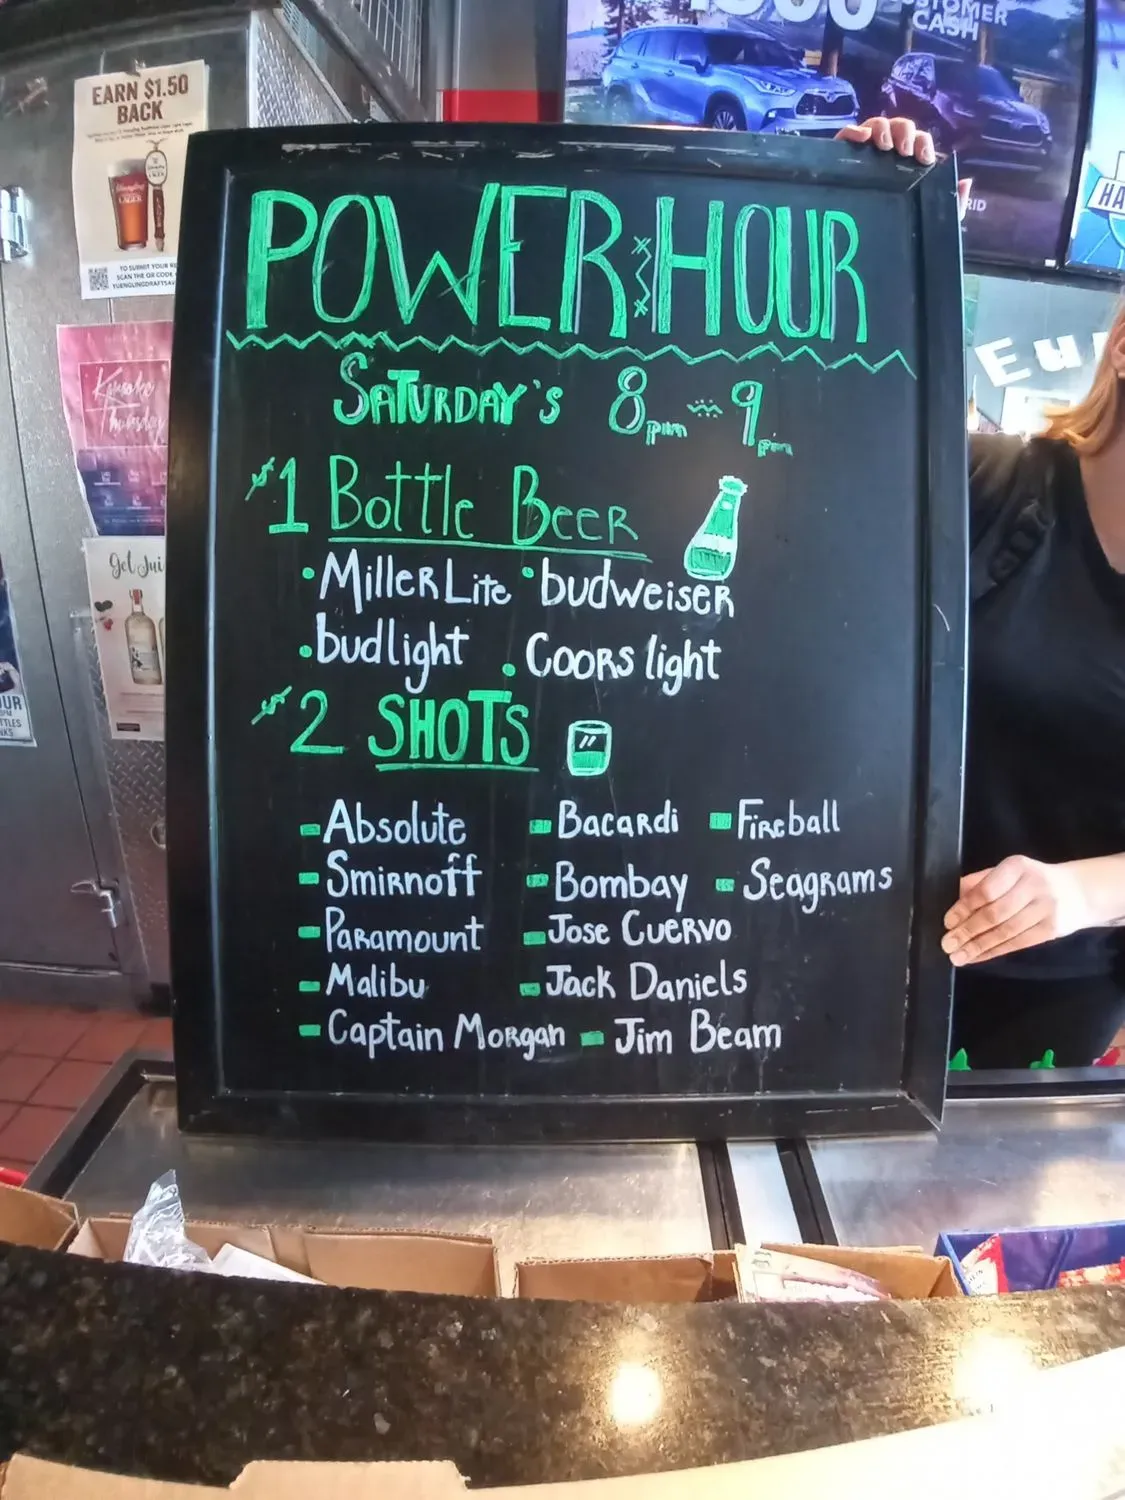 POWER HOUR
SATURDAY'S 8pm ~ 9pm
$1 Bottle Beer
• Miller Lite • budweiser
• budlight • Coors light
$2 SHOTS
- Absolute - Bacardi - Fireball
- Smirnoff - Bombay - Seagrams
- Paramount - Jose Cuervo
- Malibu - Jack Daniels
- Captain Morgan - Jim Beam
EARN $1.50
BACK
LAGER
TO SUBMIT YOUR
SCAN THE QR CODE
Karaoke
Thursday
Get
CUSTOMER
CASH